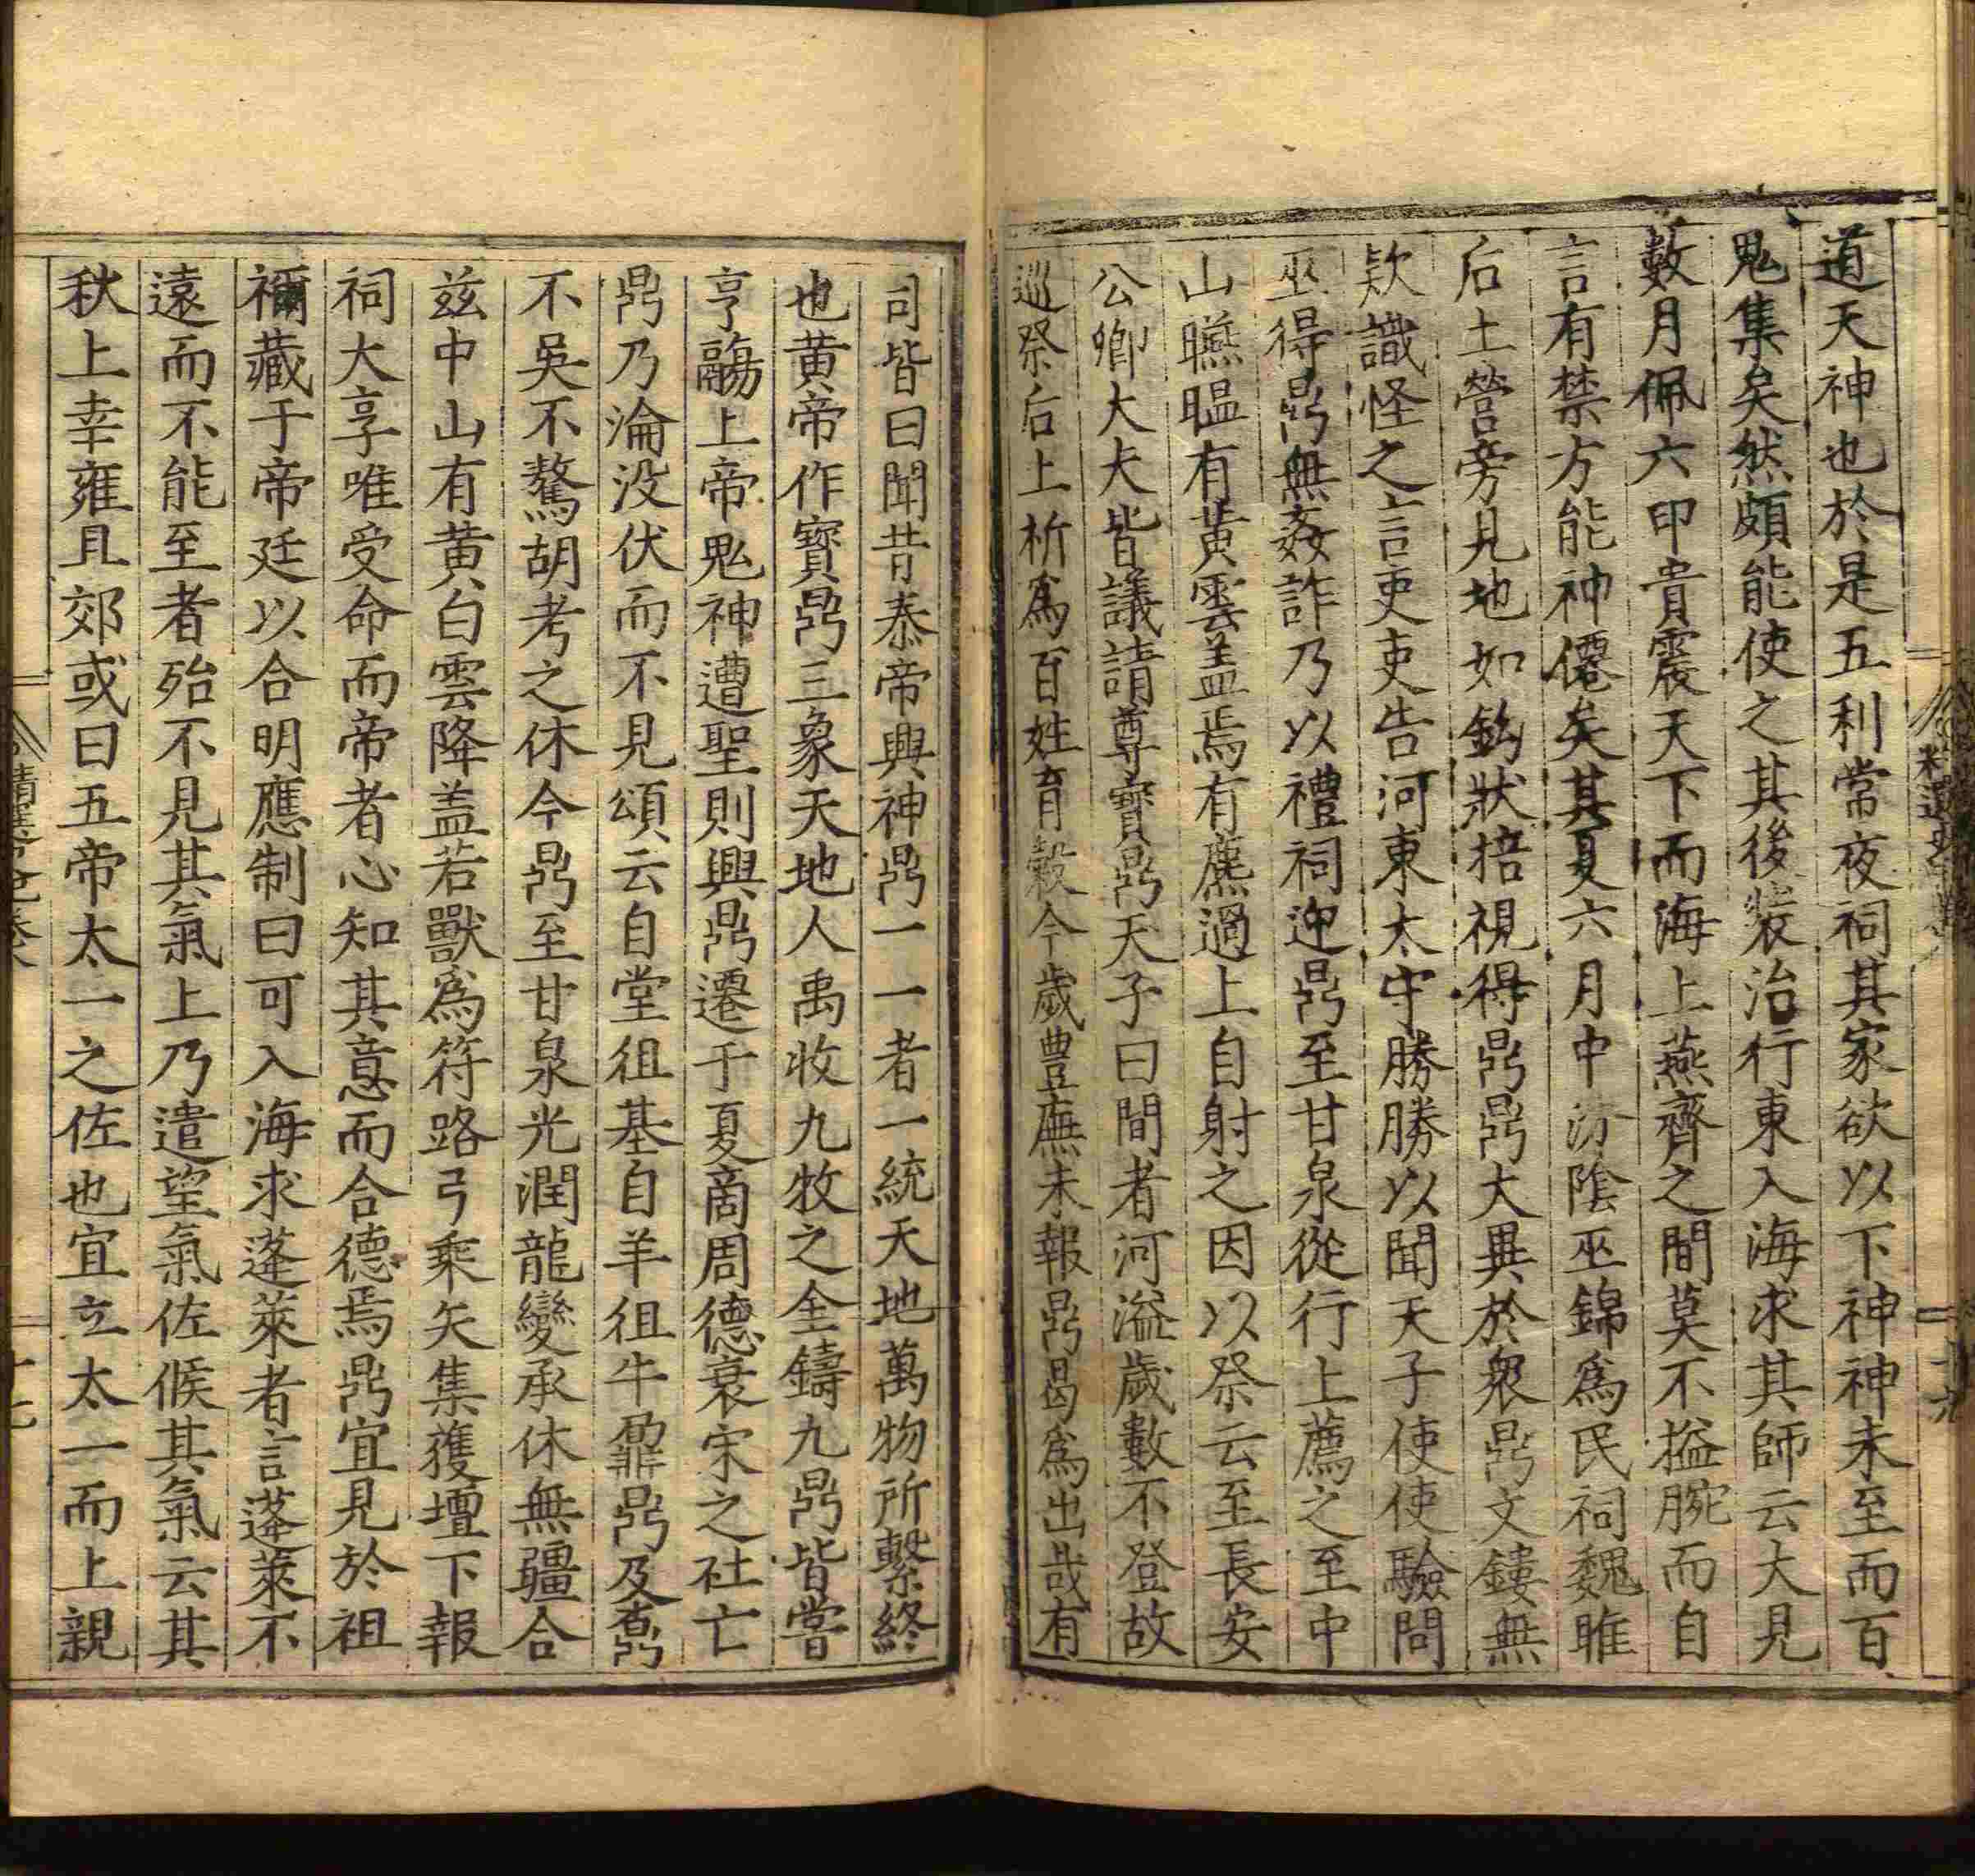 道天神也於是五利常夜祠其家欲以下神神未至而百
鬼集矣然頗能使之其後裝治行東入海求其師云大見
數月佩六印貴震天下而海上燕齊之間莫不搤腕而自
言有禁方能神僊矣其夏六月中汾陰巫錦爲民祠魏脽
后土營旁見地如鉤狀掊視得鼎鼎大異於衆鼎文鏤無
欵識怪之言吏吏告河東太守勝勝以聞天子使使驗問
巫得鼎無姦詐乃以禮祠迎鼎至甘泉從行上薦之至中
山曣㬈有黃雲盖焉有麃過上自射之因以祭云至長安
公卿大夫皆議請尊寶鼎天子曰間者河溢歲數不登故
巡祭后土祈爲百姓育穀今歲豊廡未報鼎曷爲出哉有
司皆曰聞昔泰帝興神鼎一一者一統天地萬物所繫終
也黄帝作寶鼎三象天地人禹收九牧之金鑄九鼎皆嘗
亨鬺上帝鬼神遭聖則興鼎遷于夏商周德衰宋之社亡
鼎乃淪没伏而不見頌云自堂徂基自羊徂牛鼐鼎及鼒
不吳不驁胡考之休今鼎至甘泉光潤龍變承休無疆合
兹中山有黄白雲降盖若獸爲符路弓乘矢集獲壇下報
祠大享唯受命而帝者心知其意而合德焉鼎宜見於祖
禰藏于帝廷以合明應制曰可入海求蓬萊者言蓬萊不
遠而不能至者殆不見其氣上乃遣望氣佐候其氣云其
秋上幸雍且郊或曰五帝太一之佐也宜立太一而上親